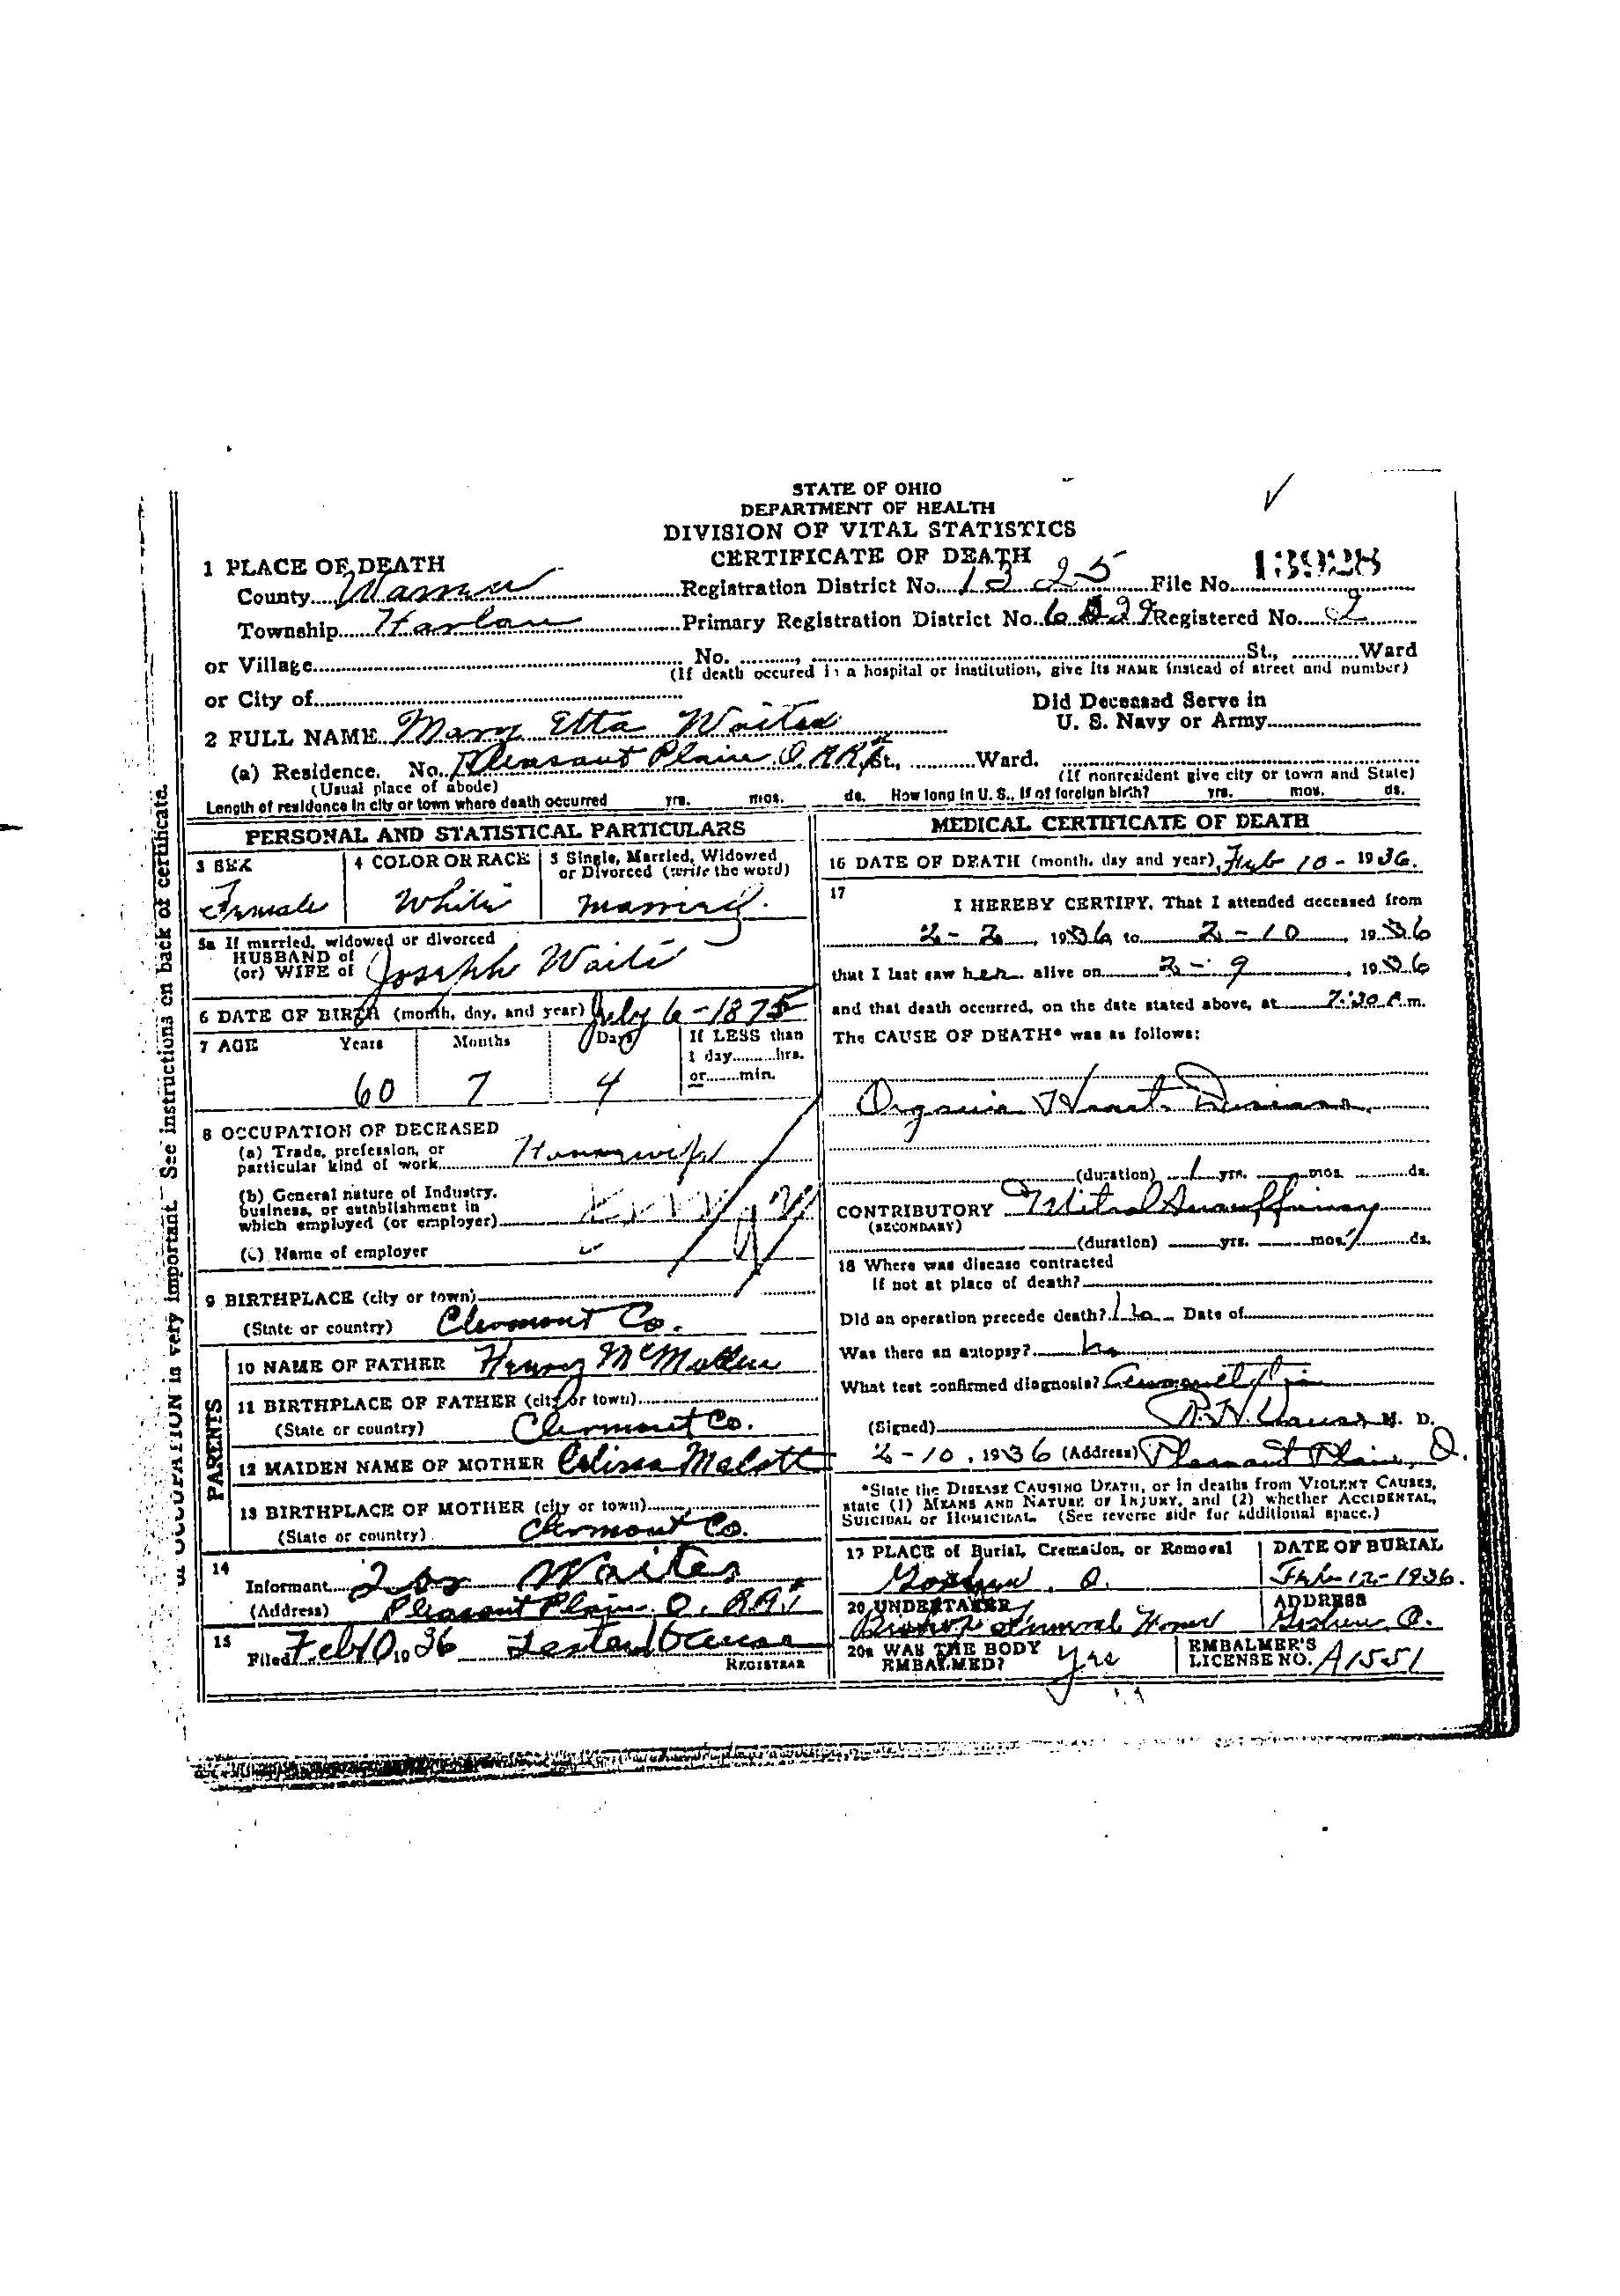 STATE OF OHIO
DEPARTMENT OF HEALTH
DIVISION OF VITAL STATISTICS
CERTIFICATE OF DEATH
1 PLACE OF DEATH
County Warren Registration District No. 1325 File No. 13928
Township Harlan Primary Registration District No. 6029 Registered No. 2
or Village No. , St., Ward
(If death occured in a hospital or institution, give its NAME instead of street and number)
or City of
Did Deceased Serve in
U. S. Navy or Army
2 FULL NAME Mary Etta Waites
(a) Residence. No. Pleasant Plain O. RR St., Ward.
(Usual place of abode) (If nonresident give city or town and State)
Length of residence in city or town where death occurred yrs. mos. ds. How long in U. S., if of foreign birth? yrs. mos. ds.
PERSONAL AND STATISTICAL PARTICULARS
3 SEX 4 COLOR OR RACE 5 Single, Married, Widowed
or Divorced (write the word)
Female White Married.
5a If married, widowed or divorced
HUSBAND of
(or) WIFE of Joseph Waits
6 DATE OF BIRTH (month, day, and year) July 6-1875
7 AGE Years Months Days If LESS than
1 day hrs.
or min.
60 7 4
8 OCCUPATION OF DECEASED
(a) Trade, profession, or
particular kind of work Housewife
(b) General nature of Industry,
business, or establishment in
which employed (or employer)
(c) Name of employer
9 BIRTHPLACE (city or town)
(State or country) Clermont Co.
PARENTS
10 NAME OF FATHER Henry McMullen
11 BIRTHPLACE OF FATHER (city or town)
(State or country) Clermont Co.
12 MAIDEN NAME OF MOTHER Malott
13 BIRTHPLACE OF MOTHER (city or town)
(State or country) Clermont Co.
14
Informant Waites
(Address) Pleasant Plain O. RR1
15
Filed Feb 10 1936
REGISTRAR
MEDICAL CERTIFICATE OF DEATH
16 DATE OF DEATH (month, day and year) Feb 10-1936.
17
I HEREBY CERTIFY, That I attended deceased from
2-2, 1936 to 2-10, 1936
that I last saw her alive on 2-9, 1936
and that death occurred, on the date stated above, at 7:30 m.
The CAUSE OF DEATH* was as follows:
Organic Heart Disease
(duration) 1 yrs. mos. ds.
CONTRIBUTORY Mitral Insufficiency
(SECONDARY)
(duration) yrs. mos. ds.
18 Where was disease contracted
if not at place of death?
Did an operation precede death? No Date of
Was there an autopsy? No
What test confirmed diagnosis?
(Signed) M. D.
2-10, 1936 (Address) Pleasant Plain, O.
*State the DISEASE CAUSING DEATH, or in deaths from VIOLENT CAUSES,
state (1) MEANS AND NATURE OF INJURY, and (2) whether ACCIDENTAL,
SUICIDAL or HOMICIDAL. (See reverse side for additional space.)
19 PLACE of Burial, Cremation, or Removal DATE OF BURIAL
Goshen, O. Feb-12-1936.
20 UNDERTAKER ADDRESS
Funeral Home Goshen O.
20a WAS THE BODY
EMBALMED? Yes
EMBALMER'S
LICENSE NO. A1551
OCCUPATION is very important. See instructions on back of certificate.